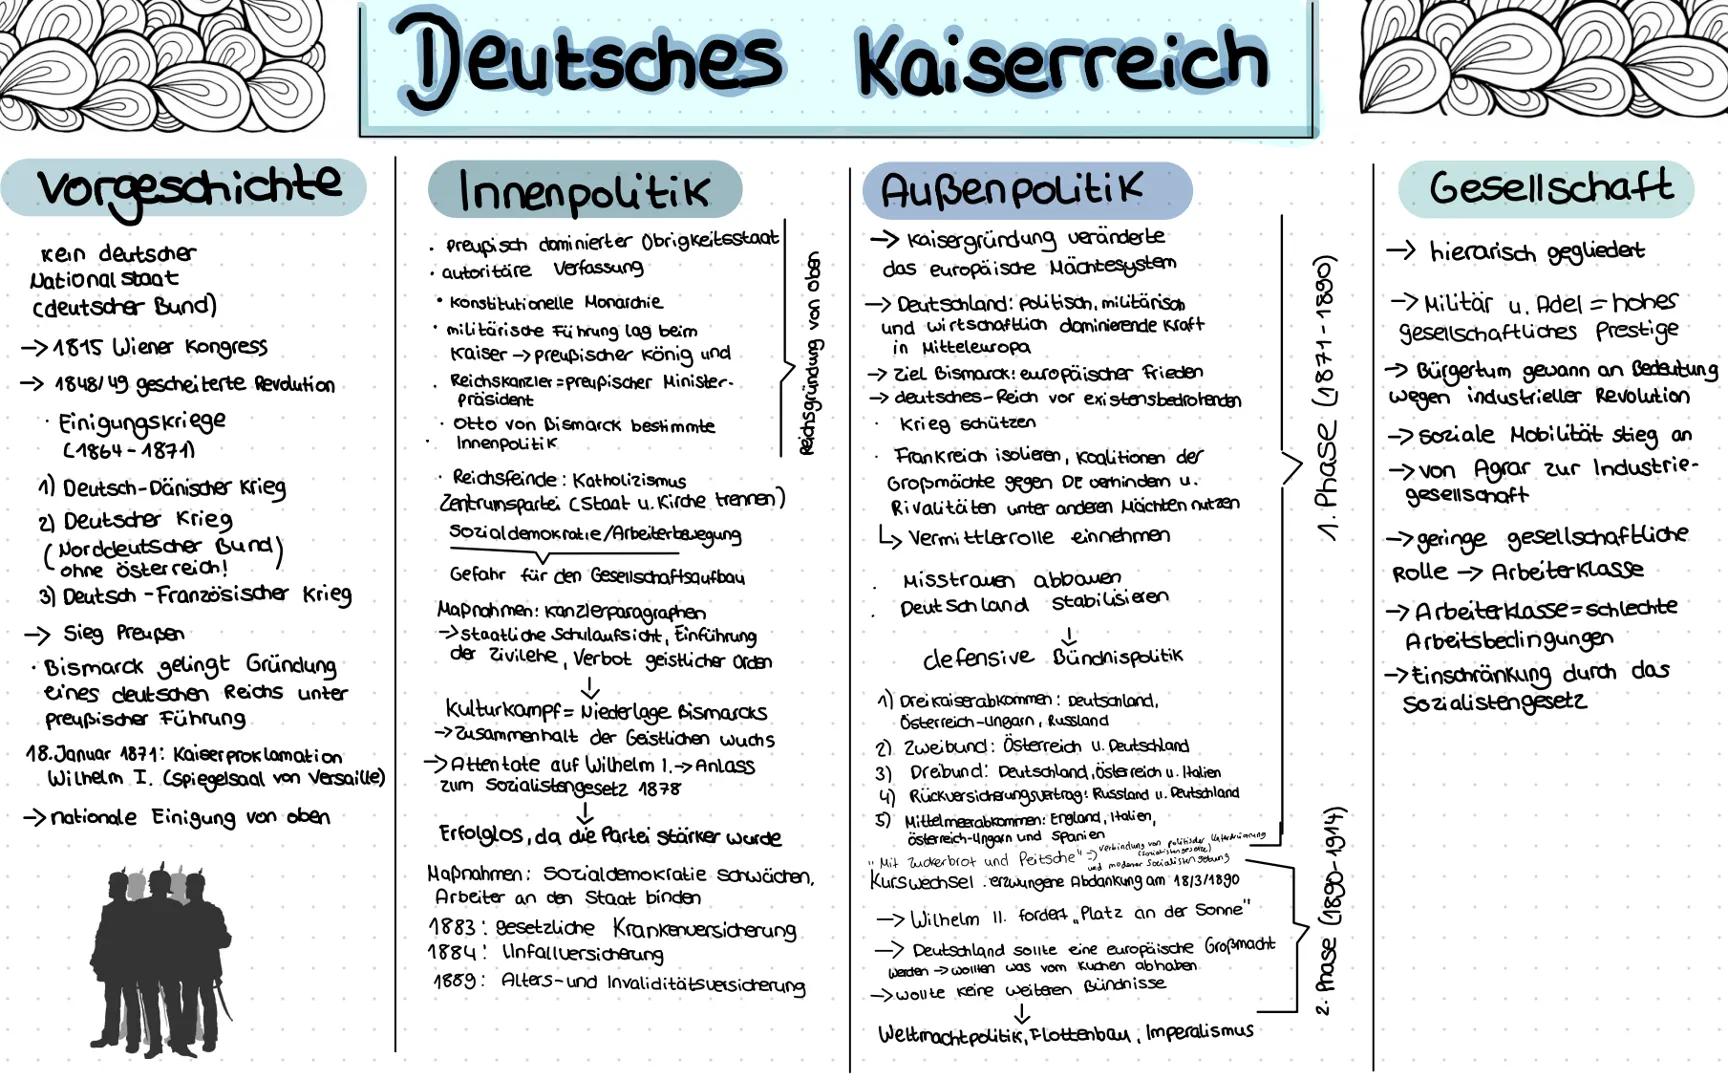 Deutsches Kaiserreich
Vorgeschichte
kein deutscher
Nationalstaat
(deutscher Bund)
→ 1815 Wiener Kongress
→ 1848/49 gescheiterte Revolution
· Einigungskriege
(1864-1871)
1) Deutsch-Dänischer Krieg
2) Deutscher Krieg
(Norddeutscher Bund)
ohne österreich!
3) Deutsch-Französischer Krieg
→ Sieg Preußen
· Bismarck gelingt Gründung
eines deutschen Reichs unter
preußischer Führung
18.Januar 1871: Kaiserproklamation
Wilhelm I. (Spiegelsaal von Versaille)
→ nationale Einigung von oben
Innenpolitik
· preußisch dominierter Obrigkeitsstaat
· autoritäre Verfassung
· Konstitutionelle Monarchie
· militärische Führung lag beim
Kaiser → preußischer König und
· Reichskanzler = preußischer Minister-
präsident
· Otto von Bismarck bestimmte
· Innenpolitik
Reichsgründung von oben
· Reichsfeinde: Katholizismus
Zentrumspartei (Staat u. Kirche trennen)
Sozialdemokratie/Arbeiterbewegung
Gefahr für den Gesellschaftsaufbau
Maßnahmen: Kanzlerparagraphen
→ staatliche Schulaufsicht, Einführung
der Zivilehe, Verbot geistlicher Orden
↓
Kulturkampf = Niederlage Bismarcks
→ Zusammenhalt der Geistlichen wuchs
→ Attentate auf Wilhelm I. → Anlass
zum Sozialistengesetz 1878
↓
Erfolglos, da die Partei stärker wurde
Maßnahmen: Sozialdemokratie schwächen,
Arbeiter an den Staat binden
1883: gesetzliche Krankenversicherung
1884: Unfallversicherung
1889: Alters- und Invaliditätsversicherung
Außenpolitik
→ Kaisergründung veränderte
das europäische Mächtesystem
→ Deutschland: politisch, militärisch
und wirtschaftlich dominierende Kraft
in Mitteleuropa
→ Ziel Bismarck: europäischer Frieden
→ deutsches-Reich vor existensbedrohenden
· Krieg schützen
· Frankreich isolieren, Koalitionen der
Großmächte gegen DE verhindern u.
Rivalitäten unter anderen Mächten nutzen
↳ Vermittlerrolle einnehmen
· Misstrauen abbauen
· Deutschland stabilisieren
↓
defensive Bündnispolitik
1) Dreikaiserabkommen: Deutschland,
Österreich-Ungarn, Russland
2) Zweibund: Österreich u. Deutschland
3) Dreibund: Deutschland, Österreich u. Italien
4) Rückversicherungsvertrag: Russland u. Deutschland
5) Mittelmeerabkommen: England, Italien,
österreich-Ungarn und Spanien
1. Phase (1871-1890)
"Mit Zuckerbrot und Peitsche" → Verbindung von politischer Unterdrückung
(Sozialistengesetze)
und moderner Sozialistengebung
Kurswechsel: erzwungene Abdankung am 18/3/1890
→ Wilhelm II. fordert „Platz an der Sonne"
→ Deutschland sollte eine europäische Großmacht
werden → wollten was vom Kuchen abhaben
→ wollte keine weiteren Bündnisse
↓
Weltmachtpolitik, Flottenbau, Imperalismus
2. Phase (1890-1914)
Gesellschaft
→ hierarisch gegliedert
→ Militär u. Adel = hohes
gesellschaftliches Prestige
→ Bürgertum gewann an Bedeutung
wegen industrieller Revolution
→ soziale Mobilität stieg an
→ von Agrar zur Industrie-
gesellschaft
→ geringe gesellschaftliche
Rolle → Arbeiterklasse
→ Arbeiterklasse = schlechte
Arbeitsbedingungen
→ Einschränkung durch das
Sozialistengesetz